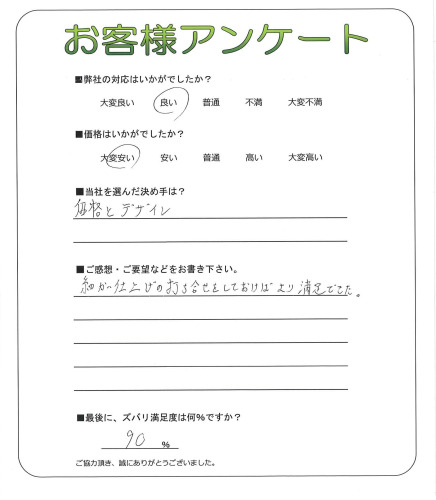 お客様アンケート
■弊社の対応はいかがでしたか？
大変良い 良い 普通 不満 大変不満
■価格はいかがでしたか？
大変安い 安い 普通 高い 大変高い
■当社を選んだ決め手は？
価格とデザイン
■ご感想・ご要望などをお書き下さい。
細かい仕上げの打ち合せをしておけばより満足できた。
■最後に、ズバリ満足度は何%ですか？
90 %
ご協力頂き、誠にありがとうございました。